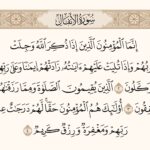 سُورَةُ الأَنفَال
إِنَّمَا ٱلْمُؤْمِنُونَ ٱلَّذِينَ إِذَا ذُكِرَ ٱللَّهُ وَجِلَتْ
قُلُوبُهُمْ وَإِذَا تُلِيَتْ عَلَيْهِمْ ءَايَٰتُهُۥ زَادَتْهُمْ إِيمَٰنًا وَعَلَىٰ رَبِّهِمْ
يَتَوَكَّلُونَ ۝ ٱلَّذِينَ يُقِيمُونَ ٱلصَّلَوٰةَ وَمِمَّا رَزَقْنَٰهُمْ
يُنفِقُونَ ۝ أُو۟لَٰٓئِكَ هُمُ ٱلْمُؤْمِنُونَ حَقًّا لَّهُمْ دَرَجَٰتٌ عِندَ
رَبِّهِمْ وَمَغْفِرَةٌ وَرِزْقٌ كَرِيمٌ ۝